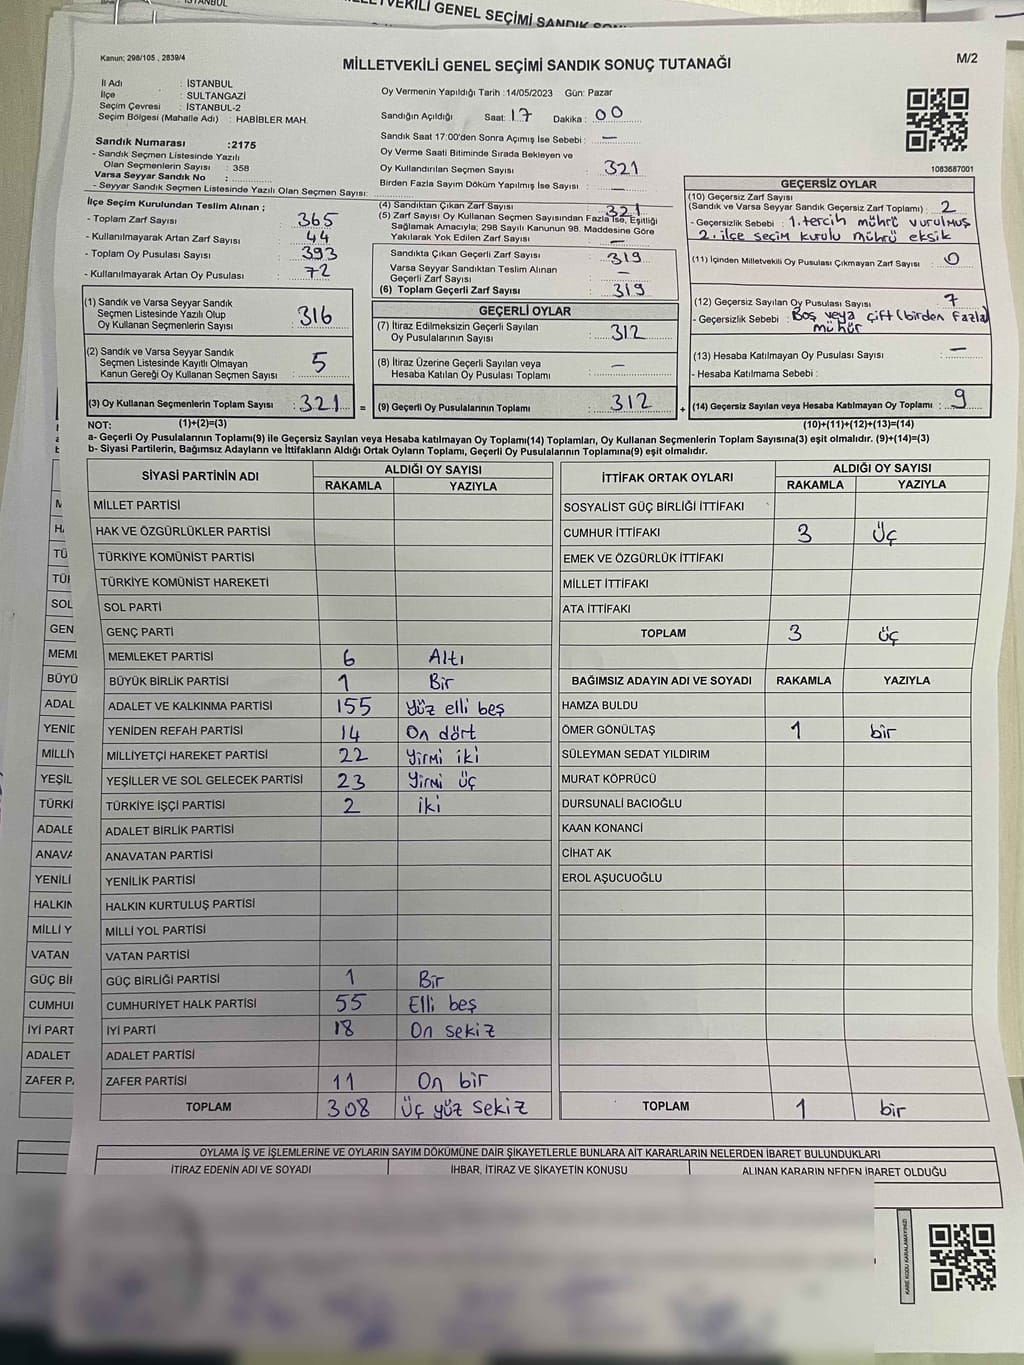 İSTANBUL
MİLLETVEKİLİ GENEL SEÇİMİ SANDIK
Kanun: 298/105 , 2839/4
MİLLETVEKİLİ GENEL SEÇİMİ SANDIK SONUÇ TUTANAĞI
M/2
İl Adı : İSTANBUL
İlçe : SULTANGAZİ
Seçim Çevresi : İSTANBUL-2
Seçim Bölgesi (Mahalle Adı) : HABİBLER MAH.
Oy Vermenin Yapıldığı Tarih :14/05/2023 Gün: Pazar
Sandığın Açıldığı Saat: 17 Dakika : 00
Sandık Saat 17:00'den Sonra Açımış İse Sebebi : —
Oy Verme Saati Bitiminde Sırada Bekleyen ve
Oy Kullandırılan Seçmen Sayısı : 321
Birden Fazla Sayım Döküm Yapılmış İse Sayısı : —
1083687001
Sandık Numarası :2175
- Sandık Seçmen Listesinde Yazılı
Olan Seçmenlerin Sayısı : 358
Varsa Seyyar Sandık No :
- Seyyar Sandık Seçmen Listesinde Yazılı Olan Seçmen Sayısı:
İlçe Seçim Kurulundan Teslim Alınan ;
- Toplam Zarf Sayısı : 365
- Kullanılmayarak Artan Zarf Sayısı : 44
- Toplam Oy Pusulası Sayısı : 393
- Kullanılmayarak Artan Oy Pusulası : 72
(1) Sandık ve Varsa Seyyar Sandık
Seçmen Listesinde Yazılı Olup
Oy Kullanan Seçmenlerin Sayısı : 316
(2) Sandık ve Varsa Seyyar Sandık
Seçmen Listesinde Kayıtlı Olmayan
Kanun Gereği Oy Kullanan Seçmen Sayısı : 5
(3) Oy Kullanan Seçmenlerin Toplam Sayısı : 321 =
(4) Sandıktan Çıkan Zarf Sayısı : 321
(5) Zarf Sayısı Oy Kullanan Seçmen Sayısından Fazla İse, Eşitliği
Sağlamak Amacıyla; 298 Sayılı Kanunun 98. Maddesine Göre
Yakılarak Yok Edilen Zarf Sayısı : —
Sandıkta Çıkan Geçerli Zarf Sayısı : 319
Varsa Seyyar Sandıktan Teslim Alınan
Geçerli Zarf Sayısı : —
(6) Toplam Geçerli Zarf Sayısı : 319
GEÇERLİ OYLAR
(7) İtiraz Edilmeksizin Geçerli Sayılan
Oy Pusulalarının Sayısı : 312
(8) İtiraz Üzerine Geçerli Sayılan veya
Hesaba Katılan Oy Pusulası Toplamı : —
(9) Geçerli Oy Pusulalarının Toplamı : 312 +
GEÇERSİZ OYLAR
(10) Geçersiz Zarf Sayısı
(Sandık ve Varsa Seyyar Sandık Geçersiz Zarf Toplamı) : 2
- Geçersizlik Sebebi : 1. tercih mührü vurulmuş
2. ilçe seçim kurulu mührü eksik
(11) İçinden Milletvekili Oy Pusulası Çıkmayan Zarf Sayısı : 0
(12) Geçersiz Sayılan Oy Pusulası Sayısı : 7
- Geçersizlik Sebebi : Boş veya çift (birden fazla)
mühür
(13) Hesaba Katılmayan Oy Pusulası Sayısı : —
- Hesaba Katılmama Sebebi :
(14) Geçersiz Sayılan veya Hesaba Katılmayan Oy Toplamı : 9
NOT: (1)+(2)=(3) (10)+(11)+(12)+(13)=(14)
a- Geçerli Oy Pusulalarının Toplamı(9) ile Geçersiz Sayılan veya Hesaba katılmayan Oy Toplamı(14) Toplamları, Oy Kullanan Seçmenlerin Toplam Sayısına(3) eşit olmalıdır. (9)+(14)=(3)
b- Siyasi Partilerin, Bağımsız Adayların ve İttifakların Aldığı Ortak Oyların Toplamı, Geçerli Oy Pusulalarının Toplamına(9) eşit olmalıdır.
SİYASİ PARTİNİN ADI ALDIĞI OY SAYISI
RAKAMLA YAZIYLA
MİLLET PARTİSİ
HAK VE ÖZGÜRLÜKLER PARTİSİ
TÜRKİYE KOMÜNİST PARTİSİ
TÜRKİYE KOMÜNİST HAREKETİ
SOL PARTİ
GENÇ PARTİ
MEMLEKET PARTİSİ 6 Altı
BÜYÜK BİRLİK PARTİSİ 1 Bir
ADALET VE KALKINMA PARTİSİ 155 Yüz elli beş
YENİDEN REFAH PARTİSİ 14 On dört
MİLLİYETÇİ HAREKET PARTİSİ 22 Yirmi iki
YEŞİLLER VE SOL GELECEK PARTİSİ 23 Yirmi üç
TÜRKİYE İŞÇİ PARTİSİ 2 iki
ADALET BİRLİK PARTİSİ
ANAVATAN PARTİSİ
YENİLİK PARTİSİ
HALKIN KURTULUŞ PARTİSİ
MİLLİ YOL PARTİSİ
VATAN PARTİSİ
GÜÇ BİRLİĞİ PARTİSİ 1 Bir
CUMHURİYET HALK PARTİSİ 55 Elli beş
İYİ PARTİ 18 On sekiz
ADALET PARTİSİ
ZAFER PARTİSİ 11 On bir
TOPLAM 308 Üç yüz sekiz
İTTİFAK ORTAK OYLARI ALDIĞI OY SAYISI
RAKAMLA YAZIYLA
SOSYALİST GÜÇ BİRLİĞİ İTTİFAKI
CUMHUR İTTİFAKI 3 Üç
EMEK VE ÖZGÜRLÜK İTTİFAKI
MİLLET İTTİFAKI
ATA İTTİFAKI
TOPLAM 3 üç
BAĞIMSIZ ADAYIN ADI VE SOYADI RAKAMLA YAZIYLA
HAMZA BULDU
ÖMER GÖNÜLTAŞ 1 bir
SÜLEYMAN SEDAT YILDIRIM
MURAT KÖPRÜCÜ
DURSUNALİ BACIOĞLU
KAAN KONANCİ
CİHAT AK
EROL AŞUCUOĞLU
TOPLAM 1 bir
OYLAMA İŞ VE İŞLEMLERİNE VE OYLARIN SAYIM DÖKÜMÜNE DAİR ŞİKAYETLERLE BUNLARA AİT KARARLARIN NELERDEN İBARET BULUNDUKLARI
İTİRAZ EDENİN ADI VE SOYADI İHBAR, İTİRAZ VE ŞİKAYETİN KONUSU ALINAN KARARIN NEDEN İBARET OLDUĞU
KARE KODU KARALAMAYINIZ!